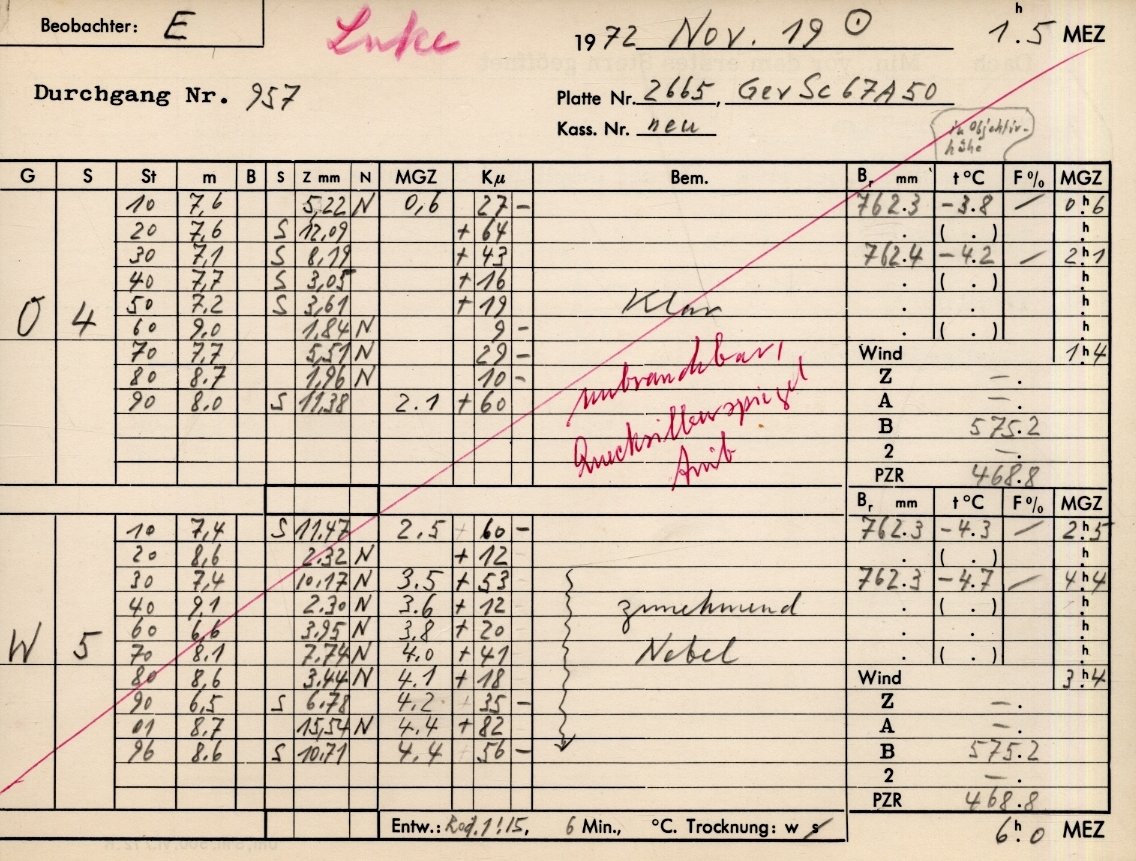 Beobachter: E
Luke
1972 Nov. 19 ☉ 1ʰ.5 MEZ
Durchgang Nr. 957
Platte Nr. 2665, GevSc67A50
Kass. Nr. neu
in Objektiv-
höhe
G S St m B S Z mm N MGZ Kμ Bem. Bᵣ mm t °C F % MGZ
10 7,6 5,22 N 0,6 27 - 762.3 -3.8 / 0ʰ6
20 7,6 S 12,09 + 64 . ( . ) .ʰ
30 7,1 S 8,19 + 43 762.4 -4.2 / 2ʰ1
40 7,7 S 3,05 + 16 . ( . ) .ʰ
O 4 50 7,2 S 3,61 + 19 Klar . . .ʰ
60 9,0 1,84 N 9 - . ( . ) .ʰ
70 7,7 5,51 N 29 - Wind 1ʰ4
80 8.7 1,96 N 10 - Z - .
90 8,0 S 11,38 2.1 + 60 A - .
unbrauchbar,
Quecksilberspiegel
B 575.2
2 - .
PZR 468.8
Bᵣ mm t °C F % MGZ
10 7,4 S 11,47 2.5 + 60 - 762.3 -4.3 / 2ʰ5
20 8,6 2.32 N + 12 . ( . ) .ʰ
30 7,4 10,17 N 3.5 + 53 762.3 -4.7 / 4ʰ4
40 9,1 2.30 N 3.6 + 12 zunehmend . ( . ) .ʰ
60 6,6 3,95 N 3.8 + 20 . . .ʰ
W 5 70 8,1 7,74 N 4.0 + 41 Nebel . ( . ) .ʰ
80 8,6 3,44 N 4.1 + 18 Wind 3ʰ4
90 6,5 S 6,78 4.2 + 35 - Z - .
01 8,7 15,54 N 4.4 + 82 A - .
96 8.6 S 10,71 4.4 + 56 - B 575.2
2 - .
PZR 468.8
Entw.: Rod. 1:15, 6 Min., °C. Trocknung: w s
6ʰ.0 MEZ